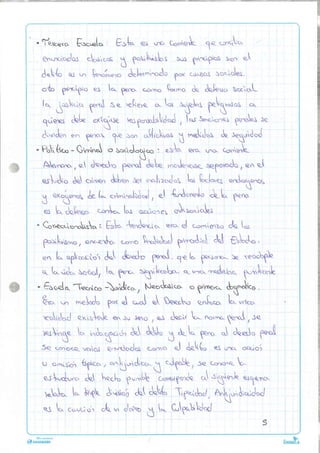 • Tercera Escuela: Esta es una corriente que concilia
enunciados clásicos y positivistas sus principios son el
delito es un fenómeno determinado por causas sociales
otro principio es la pena como forma de defensa social
la justicia penal se refiere a los sujetos peligrosos a
quienes debe exigirse responsabilidad, las sanciones penales se
dividen en penas que son aflictivas y medidas de seguridad
• Politico - Criminal o sociologica: esta era una corriente
Alemana, el derecho penal debe mantenerse separado, en el
estudio del crimen deben ser analizados los factores endogenos,
y exogenos de la criminalidad, el fundamento de la pena
es la defensa contra las acciones antisociales
• Correccionalista: Esta tendencia era el comienzo de los
positivismo, como finalidad primordial del Estado.
en la aplicación del derecho penal, que la persona se readapte
a la vida social, la pena significaba una medida
• Escuela Tecnico - Juridica, Neoclasica o primera dogmatica.
Era un metodo por el cual el Derecho enfoca la unica
realidad existente en su seno, es decir la norma penal, se
restringe la indagación del delito y de la pena al derecho penal
Se conoce varios enunciados como el delito es una acción
u omisión típica, antijuridica y culpable, se conoce la
estructura del hecho punible corresponde al siguiente esquema
relata la triple división del delito Tipicidad, Antijuridicidad
es la causación de un daño y la Culpabilidad
5